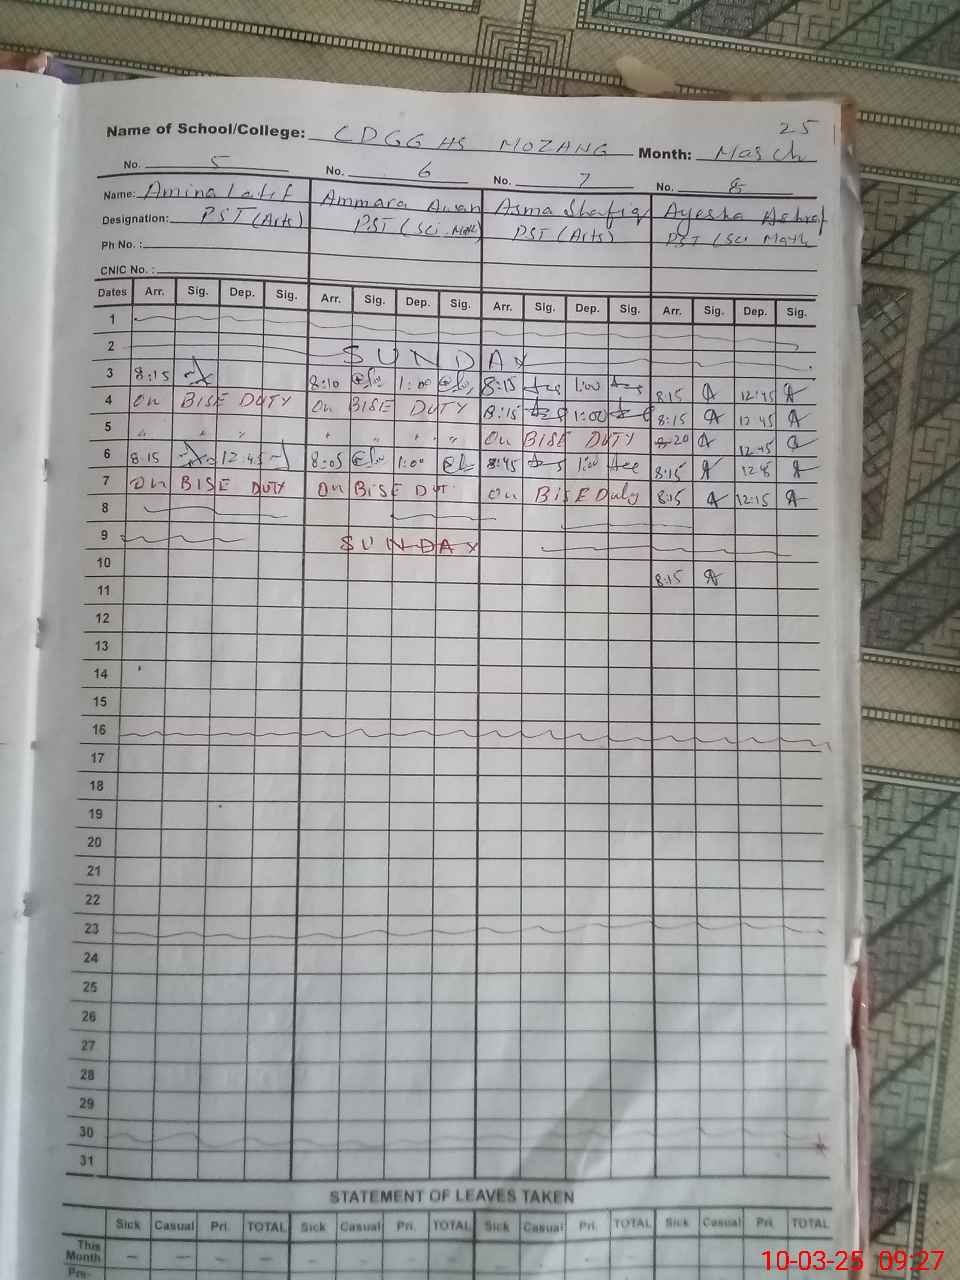 25
Name of School/College: CDGG HS MOZANG Month: March
No. 5 No. 6 No. 7 No. 8
Name: Amina Latif Ammara Awan Asma Shafiq Ayesha Ashraf
Designation: PST (Arts) PST (Sci. Math) PST (Arts) PST (Sci Math
Ph No.:
CNIC No.:
Dates Arr. Sig. Dep. Sig. Arr. Sig. Dep. Sig. Arr. Sig. Dep. Sig. Arr. Sig. Dep. Sig.
1
2 SUNDAY
3 8:15 8:10 1:00 8:15 1:00 8:15 A 12:45 A
4 On BISE DUTY On BISE DUTY 8:15 1:00 8:15 A 12:45 A
5 " " " " " " " On BISE DUTY 8:20 A 12:45 A
6 8:15 12:45 8:05 1:00 8:45 1:00 8:15 A 12:8 A
7 On BISE DUTY On BISE DUT. On BISE Duty 8:15 A 12:15 A
8
9 SUNDAY
10 8:15 A
11
12
13
14
15
16
17
18
19
20
21
22
23
24
25
26
27
28
29
30
31
STATEMENT OF LEAVES TAKEN
Sick Casual Pri. TOTAL Sick Casual Pri. TOTAL Sick Casual Pri. TOTAL Sick Casual Pri. TOTAL
This Month – – – – – – – – – – – – – – – –
Pre-
10-03-25 09:27